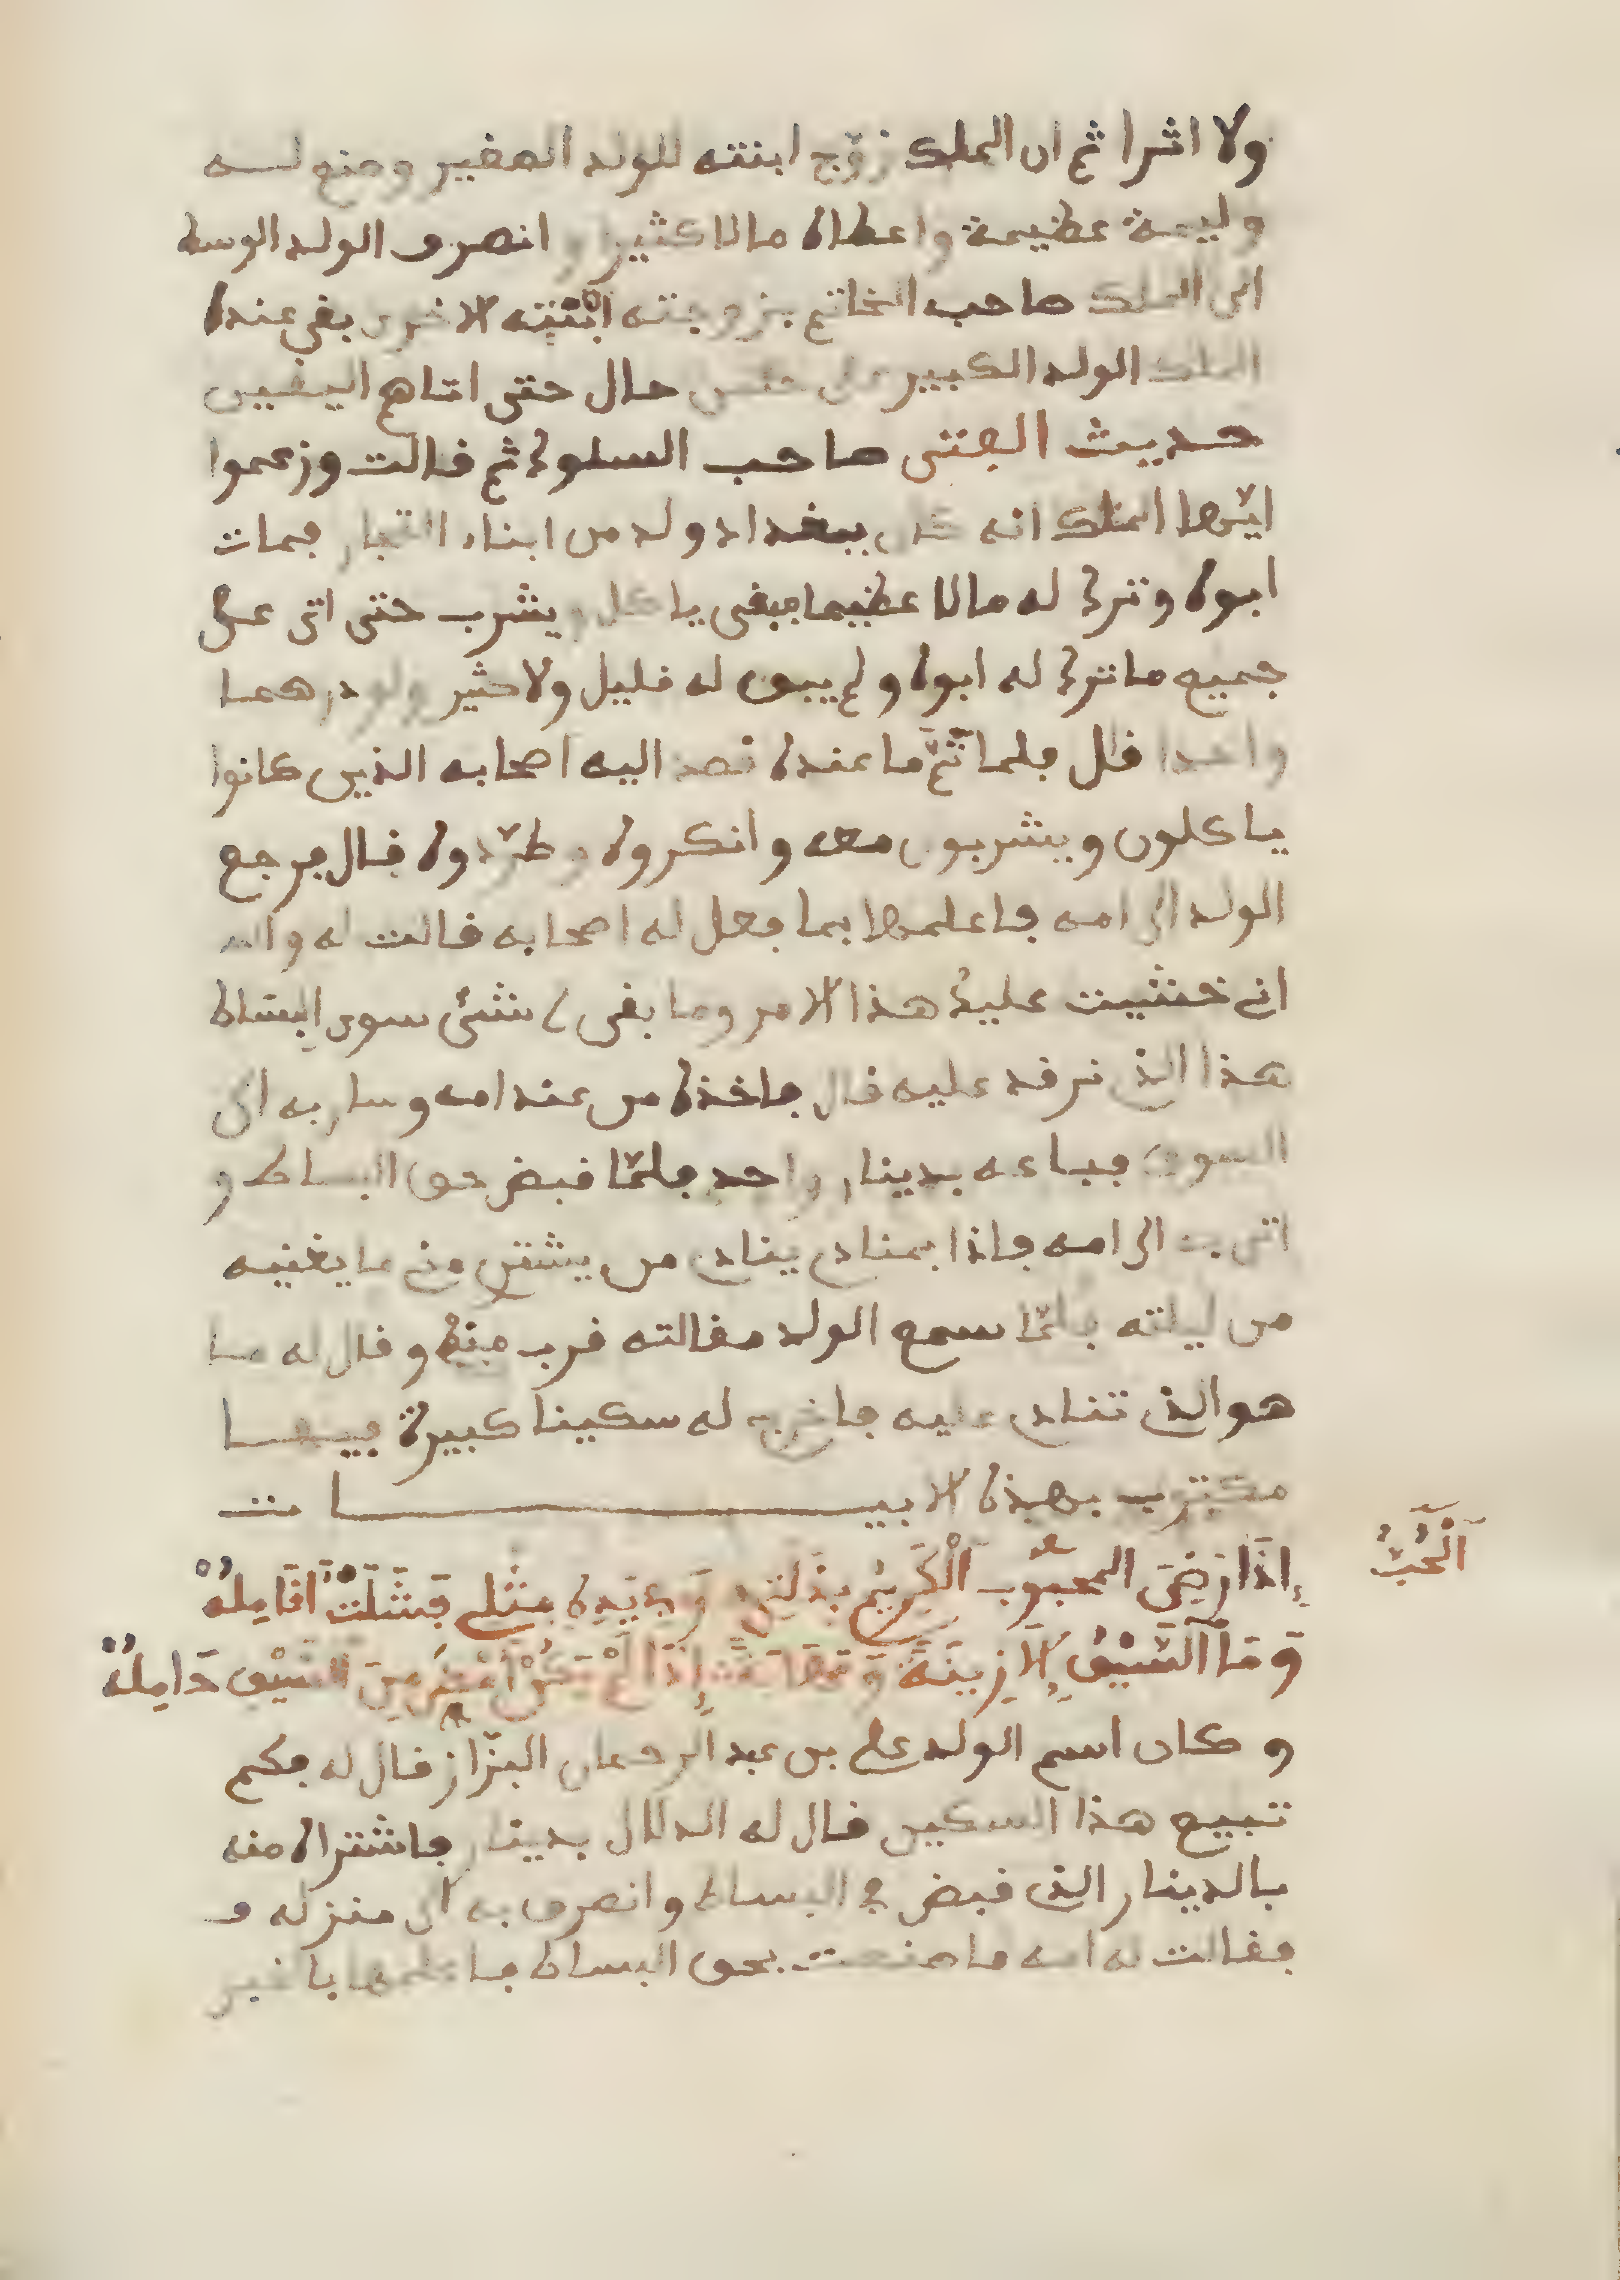 ولا اثرا ثم ان الملك زوّج ابنته للولد الصغير وصنع لــه
وليمة عظيمة واعطاه مالا كثيرا وانصرف الولد الوسط
الى الملك صاحب الخاتم بزوجته ابنته الاخرى بقى عنده
الملك الولد الكبير على حسن حال حتى اتاهم اليقين
حديث الفتى صاحب السلوك ثم قالت وزعموا
ايّها الملك انه كان ببغداد ولد من ابناء التجار فمات
ابوه وترك له مالا عظيما فبقى ياكل ويشرب حتى اتى على
جميع ما ترك له ابوه ولم يبق له قليل ولا كثير ولا درهما
واحدا قال فلما تمّ ما عنده قصد اليه اصحابه الذين كانوا
ياكلون ويشربون معه وانكروه وطرّدوه قال فرجع
الولد الى امه فاعلمها بما فعل له اصحابه فقالت له والله
انى خشيت عليك هذا الامر وما بقى لى شئ سوى البساط
هذا الذى نرقد عليه قال فاخذه من عند امه وسار به الى
السوق فباعه بدينار واحد فلمّا قبض حق البساط و
اتى به الى امه فاذا بمنادى ينادى من يشترى منى ما يغنيه
من ليلته فلمّا سمع الولد مقالته قرب منه وقال له مــا
هو الذى تنادى عليه فاخرج له سكينا كبيرة فيهــا
مكتوب بهذه الابيــــات
إِذَا رَضِيَ المحبُوب الْكَرِيمُ بِذَلَّتِي وَفِي يَدِهِ مِثْلِي فَشَلَّتْ أَنَامِلُهْ
اَلْحِبُّ
وَمَا اَلسَّيْفُ إِلَّا زِينَةٌ إِذَا لَمْ يَكُنْ أَمْضَى مِنَ السَّيْفِ حَامِلُهْ
وكان اسم الولد على بن عبد الرحمان البزّاز قال له فكم
تبيع هذا السكين قال له الدلال بدينار فاشتراه منه
بالدينار الذى قبض فى البساط وانصرف به الى منزله و
فقالت له امه ما صنعت بحق البساط فاعلمها بالخبر